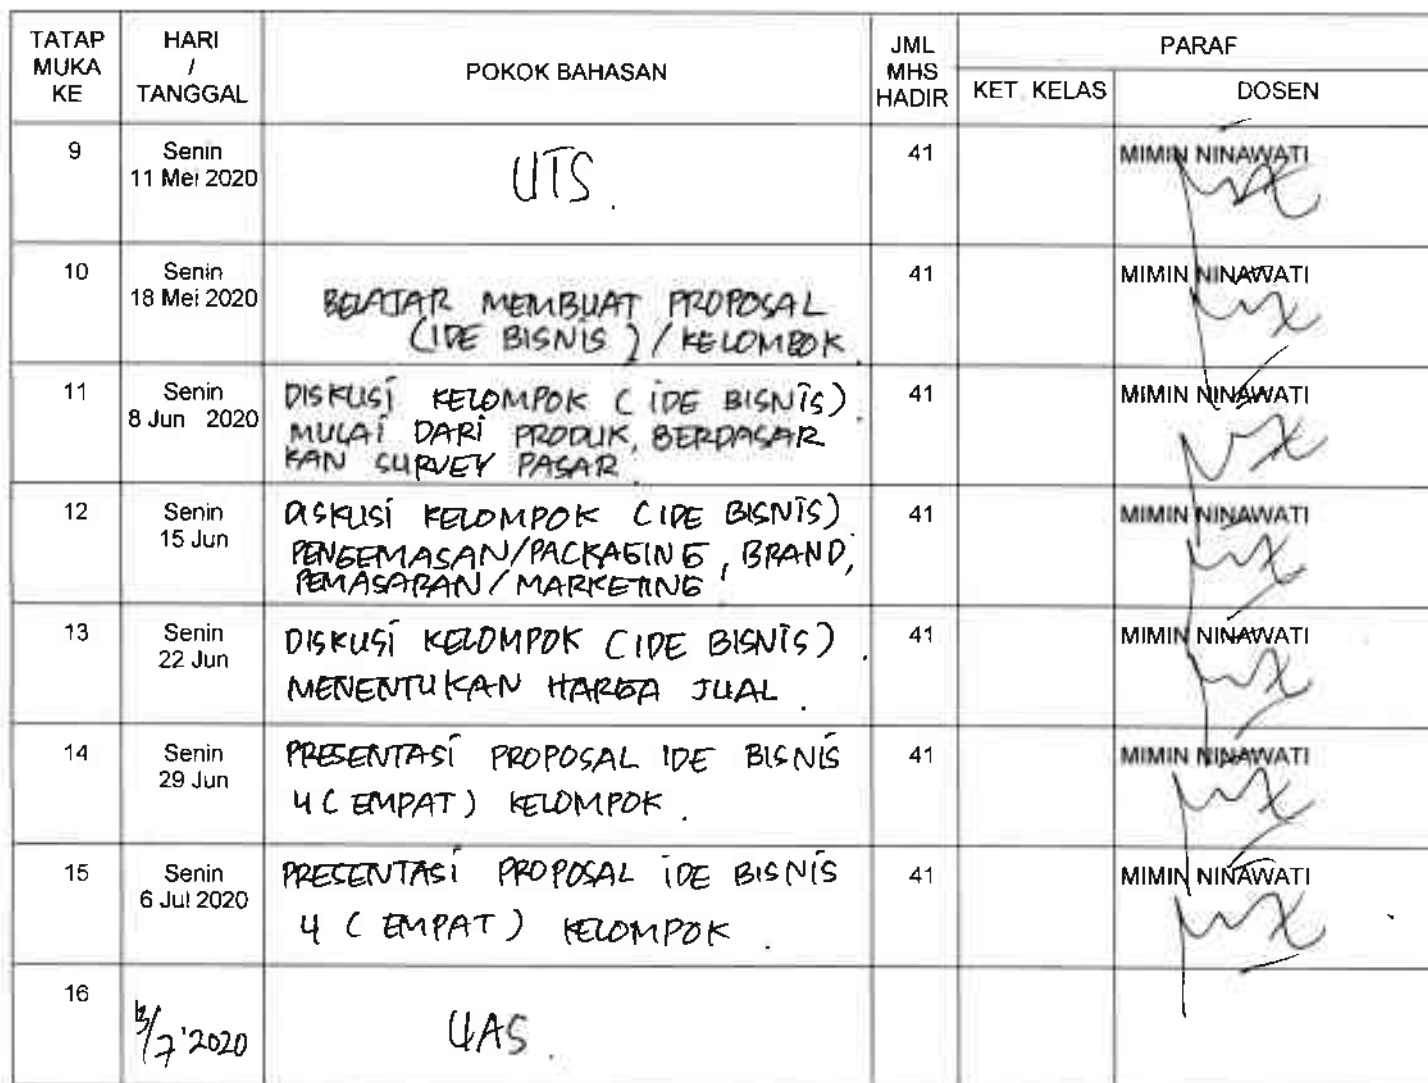 TATAP MUKA KE
HARI / TANGGAL
POKOK BAHASAN
JML MHS HADIR
PARAF
KET. KELAS
DOSEN
9
Senin
11 Mei 2020
UTS.
41
MIMIN NINAWATI
10
Senin
18 Mei 2020
BELAJAR MEMBUAT PROPOSAL
(IDE BISNIS) / KELOMBOK
41
MIMIN NINAWATI
11
Senin
8 Jun 2020
DISKUSI KELOMPOK (IDE BISNIS)
MULAI DARI PRODUK, BERDASAR
KAN SURVEY PASAR.
41
MIMIN NINAWATI
12
Senin
15 Jun
DISKUSI KELOMPOK (IDE BISNIS)
PENGEMASAN/PACKAGING, BRAND,
PEMASARAN/MARKETING
41
MIMIN NINAWATI
13
Senin
22 Jun
DISKUSI KELOMPOK (IDE BISNIS).
MENENTUKAN HARGA JUAL.
41
MIMIN NINAWATI
14
Senin
29 Jun
PRESENTASI PROPOSAL IDE BISNIS
4 (EMPAT) KELOMPOK.
41
MIMIN NINAWATI
15
Senin
6 Jul 2020
PRESENTASI PROPOSAL IDE BISNIS
4 (EMPAT) KELOMPOK.
41
MIMIN NINAWATI
16
/7 '2020
UAS.